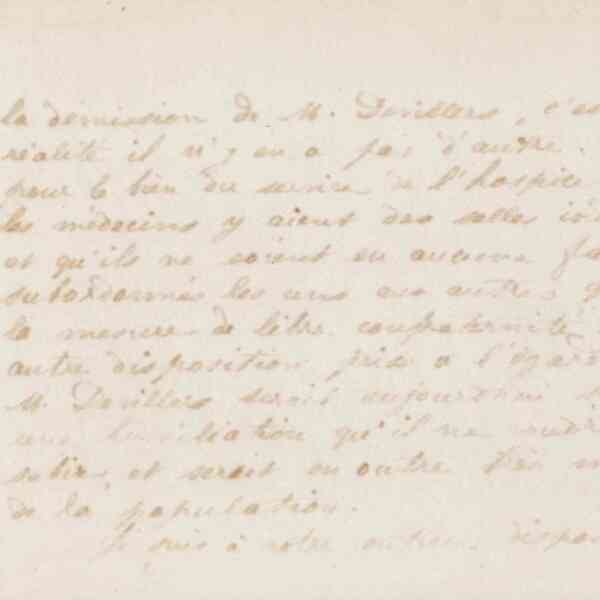 la démission de M. Devillers, c'es
réalité il n'y en a pas d'autre.
pour le bien du service de l'hospice
les médecins y aient des salles
et qu'ils ne soient en aucune
subordonnés les uns aux autres,
la mesure de libre confraternité
autre disposition prise à l'égar
M. Devillers serait aujourdhui
une humiliation qu'il ne
subir, et serait en outre très m
de la population.
Je suis à entière dispo